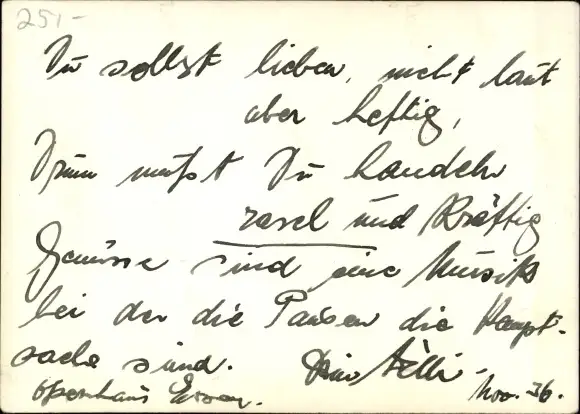 251-
Du sollst lieben, nicht laut
aber heftig,
Drum mußt Du handeln
rasch und kräftig
Genüsse sind eine Musik
bei der die Pausen die Haupt-
sache sind.
Opernhaus Essen.
Nov. 36.